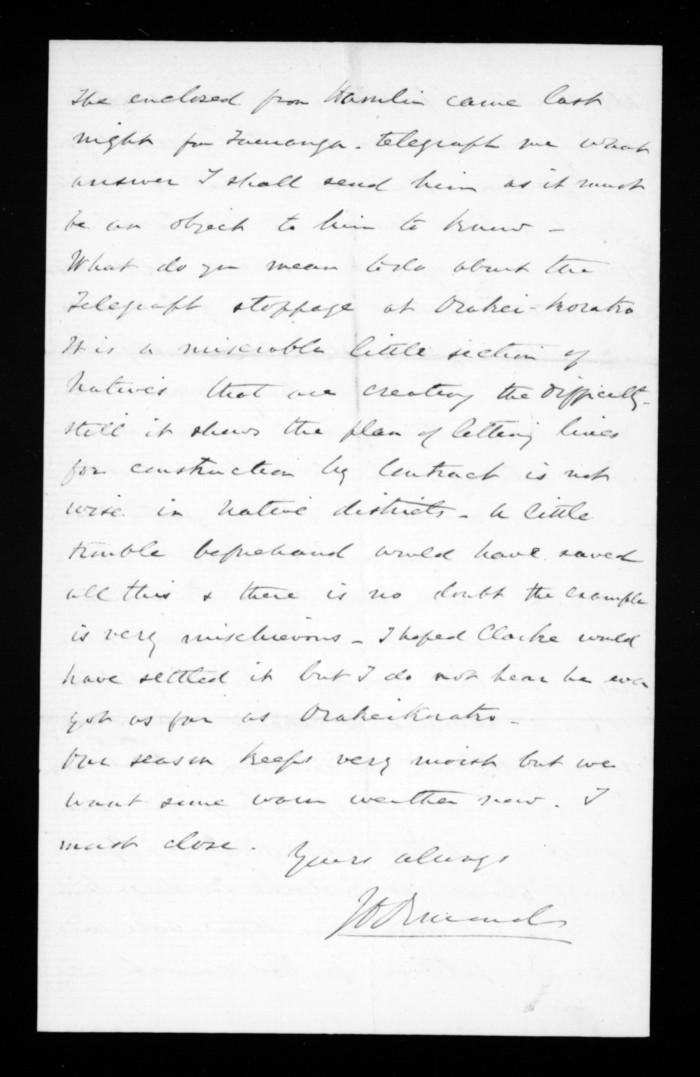 The enclosed from Hamlin came last
night from Tauranga. telegraph me what
answer I shall send him as it must
be an object to him to know -
What do you mean to do about the
Telegraph stoppage at Orakei-Korako
It is a miserable little section of
Natives that are creating the difficulty -
still it shows the plan of letting lines
for construction by Contract is not
wise in Native districts - A little
trouble beforehand would have saved
all this & there is no doubt the example
is very mischievous - I hoped Clarke would
have settled it but I do not hear he ever
got as far as Orakeikorako -
Our season keeps very moist but we
want some warm weather now. I
must close.
Yours always
JD Ormond